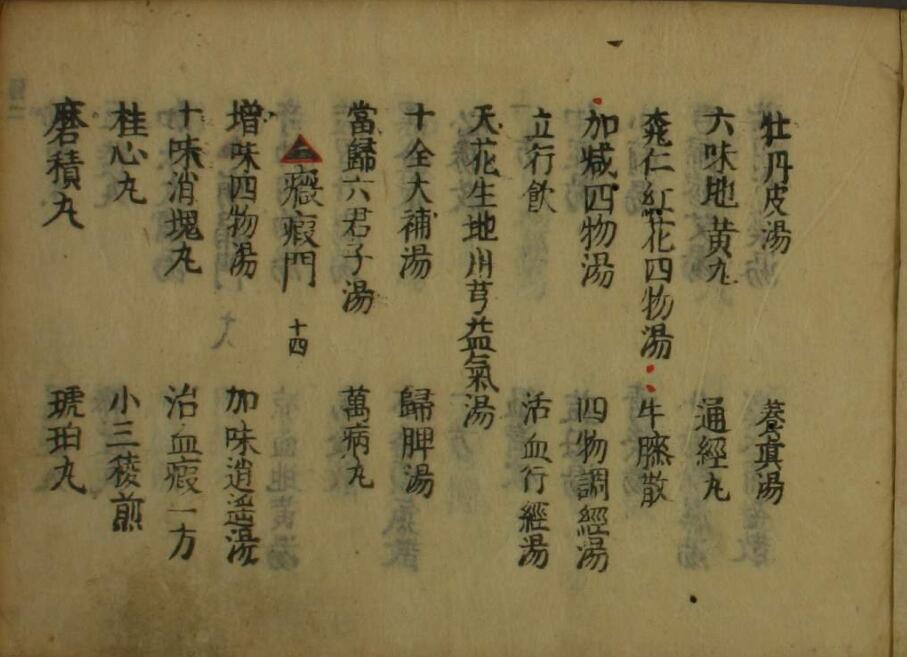 牡丹皮湯 養真湯
六味地黄丸 通經丸
桃仁紅花四物湯 牛膝散
加减四物湯 四物調經湯
立行飲 活血行經湯
天花生地川芎益氣湯
十全大補湯 歸脾湯
當歸六君子湯 萬病丸
癥瘕門 十四
增味四物湯 加味逍遙湯
十味消塊丸 治血瘕一方
桂心丸 小三稜煎
磨積丸 琥珀丸